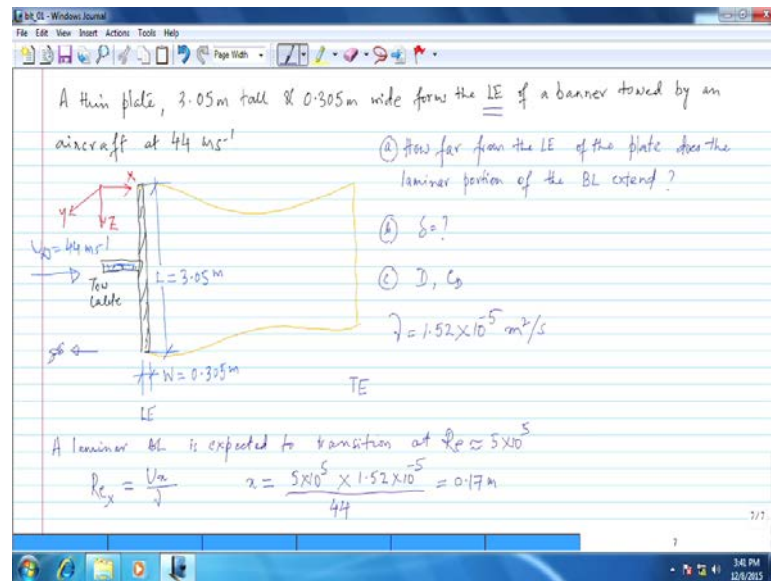 blt_01 - Windows Journal
File Edit View Insert Actions Tools Help
Page Width
A thin plate, 3.05m tall & 0.305m wide forms the LE of a banner towed by an
aircraft at 44 ms⁻¹
(a) How far from the LE of the plate does the
laminar portion of the BL extend?
(b) δ = ?
(c) D, C_D
ν = 1.52×10⁻⁵ m²/s
X
y
Z
U∞ = 44 ms⁻¹
Tow
cable
L = 3.05 m
W = 0.305 m
LE
TE
A laminar BL is expected to transition at Re ≈ 5×10⁵
Re_x = Ux/ν x = 5×10⁵ × 1.52×10⁻⁵ / 44 = 0.17 m
7/7
7
3:41 PM
12/6/2015